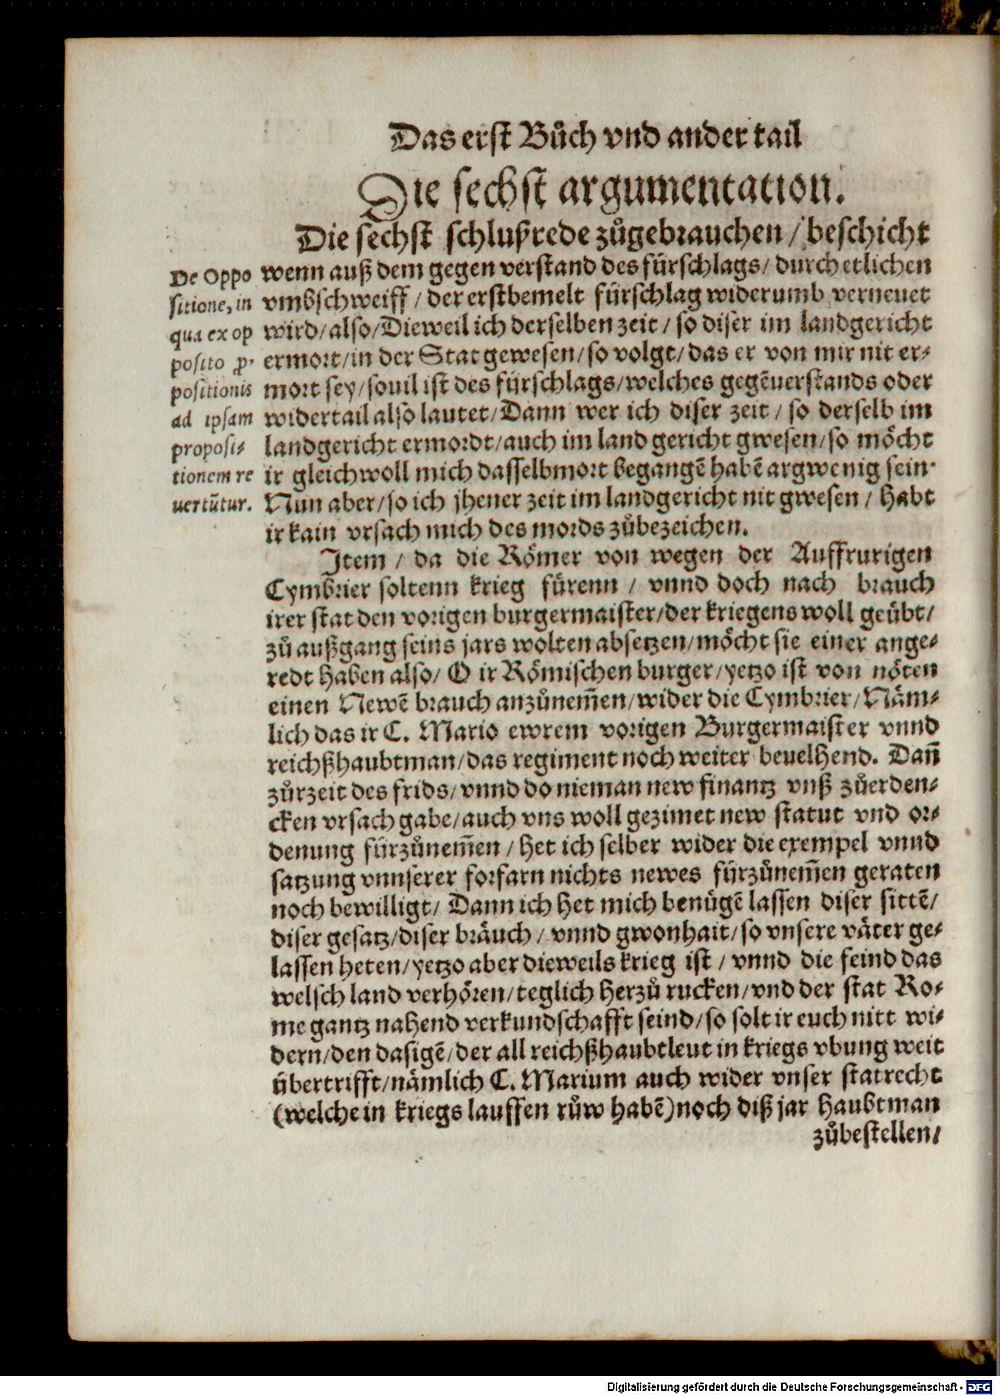 Das erst Bůch vnd ander tail
Die sechst argumentation.
Die sechst schlußrede zůgebrauchen / beschicht
wenn auß dem gegen verstand des fürschlags / durch etlichen
vmbschweiff / der erstbemelt fürschlag widerumb verneuet
wird / also / Dieweil ich derselben zeit / so diser im landgericht
ermort / in der Stat gewesen / so volgt / das er von mir nit er⸗
mort sey / souil ist des fürschlags / welches gegēuerstands oder
widertail also lautet / Dann wer ich diser zeit / so derselb im
landgericht ermordt / auch im land gericht gwesen / so möcht
ir gleichwoll mich dasselbmort begangē habē argwenig sein.
Nun aber / so ich jhener zeit im landgericht nit gwesen / habt
ir kain vrsach mich des mords zůbezeichen.
De Oppo
sitione, in
qua ex op
posito ꝓ⸱
positionis
ad ipsam
proposi⸗
tionem re
uertūtur.
Item / da die Römer von wegen der Auffrurigen
Cymbrier soltenn krieg fürenn / vnnd doch nach brauch
irer stat den vorigen burgermaister / der kriegens woll geübt /
zů außgang seins jars wolten absetzen / möcht sie einer ange⸗
redt haben also / O ir Römischen burger / yetzo ist von nöten
einen Newē brauch anzůnem̄en / wider die Cymbrier / Näm⸗
lich das ir C. Mario ewrem vorigen Burgermaister vnnd
reichßhaubtman / das regiment noch weiter beuelhend. Dan̄
zůrzeit des frids / vnnd do nieman new finantz vnß zůerden⸗
cken vrsach gabe / auch vns woll gezimet new statut vnd or⸗
denung fürzůnem̄en / het ich selber wider die exempel vnnd
satzung vnnserer forfarn nichts newes fürzůnem̄en geraten
noch bewilligt / Dann ich het mich benügē lassen diser sittē /
diser gesatz / diser bräuch / vnnd gwonhait / so vnsere väter ge⸗
lassen heten / yetzo aber dieweils krieg ist / vnnd die feind das
welsch land verhören / teglich herzů rucken / vnd der stat Ro⸗
me gantz nahend verkundschafft seind / so solt ir euch nitt wi⸗
dern / den dasigē / der all reichßhaubtleut in kriegs vbung weit
übertrifft / nämlich C. Marium auch wider vnser statrecht
(welche in kriegs lauffen růw habē) noch diß jar haubtman
zůbestellen /
Digitalisierung gefördert durch die Deutsche Forschungsgemeinschaft - DFG